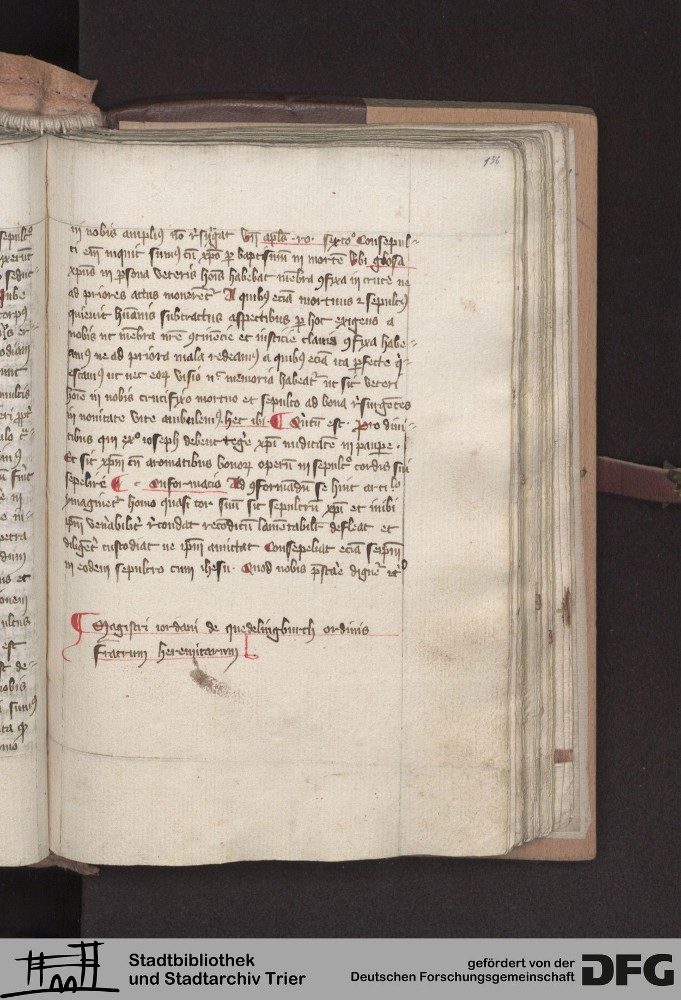 136
in nobis amplius no resurgat Un apls ro. sexto Consepul-
ti em inquit sumus cu xpo per baptismu in morte Ubi glosa
xpus in persona veteris hois habebat membra 9fixa in cruce ne
ad priores actus moveretr A quibus ecia mortuus et sepultus
quievit humanis subtractus aspectibus per hoc exigens a
nobis ut membra nre 9tinencie et iusticie clavis 9fixa habe-
amus ne ad priora mala redeamus a quibus ecia ita perfecte qi-
escamus ut nec eor visio nec memoria habeatr ut sic veteri
hoie in nobis crucifixo mortuo et sepulto ad bona resurgetes
in novitate vite ambulemus. hec ibi. Qintu est. Pro divi-
tibus qui exo ioseph debent tegere xpi nuditate in paupere.
Et sic xpm cu aromatibus bonor operu in sepulcro cordis sui
sepelire Conformacio Ad 9formadu se huic articulo
ymaginetr homo quasi cor suu sit sepulcru xpi et inibi
ipm venerabilit recondat reconditu lamentabilit defleat et
diligetr custodiat ne ipm amittat Consepeliat ecia seipm
in eodem sepulcro cum ihesu. Quod nobis prestare dignetr
Magistri iordani de quedelingburch ordinis
Fratrum heremitarum
Stadtbibliothek
und Stadtarchiv Trier
gefördert von der
Deutschen Forschungsgemeinschaft
DFG